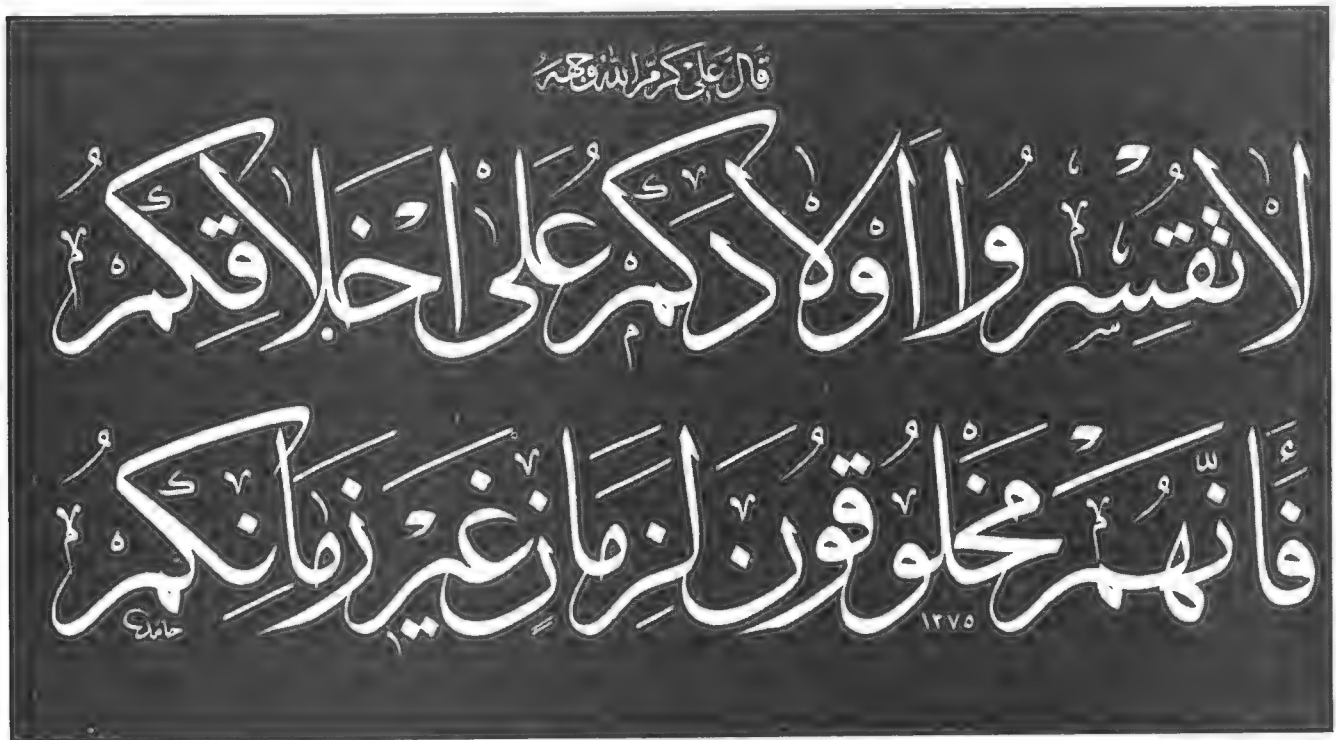 قَالَ عَلِيٌّ كَرَّمَ اللّٰهُ وَجْهَهُ
لَا تَقْسِرُوا أَوْلَادَكُمْ عَلَى أَخْلَاقِكُمْ
فَأَنَّهُمْ مَخْلُوقُونَ لِزَمَانٍ غَيْرِ زَمَانِكُمْ
١٣٧٥
حامد